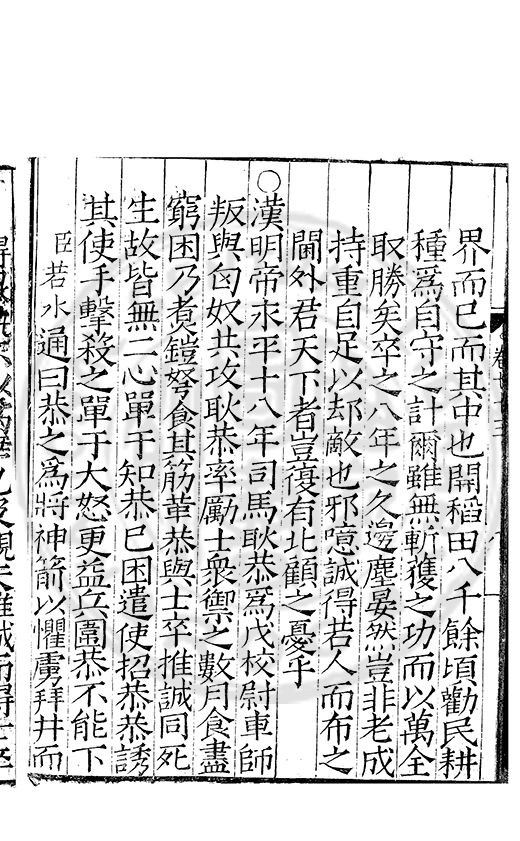 界而已而其中也開稻田八千餘頃勸民耕
種爲自守之計爾雖無斬獲之功而以萬全
取勝矣卒之八年之久邊塵晏然豈非老成
持重自足以却敵也邪噫誠得若人而布之
閫外君天下者豈復有北顧之憂乎
○漢明帝永平十八年司馬耿恭爲戊校尉車師
叛與匈奴共攻耿恭率勵士衆禦之數月食盡
窮困乃煑鎧弩食其筋革恭與士卒推誠同死
生故皆無二心單于知恭已困遣使招恭恭誘
其使手擊殺之單于大怒更益兵圍恭不能下
臣若水通曰恭之爲將神箭以懼虜拜井而